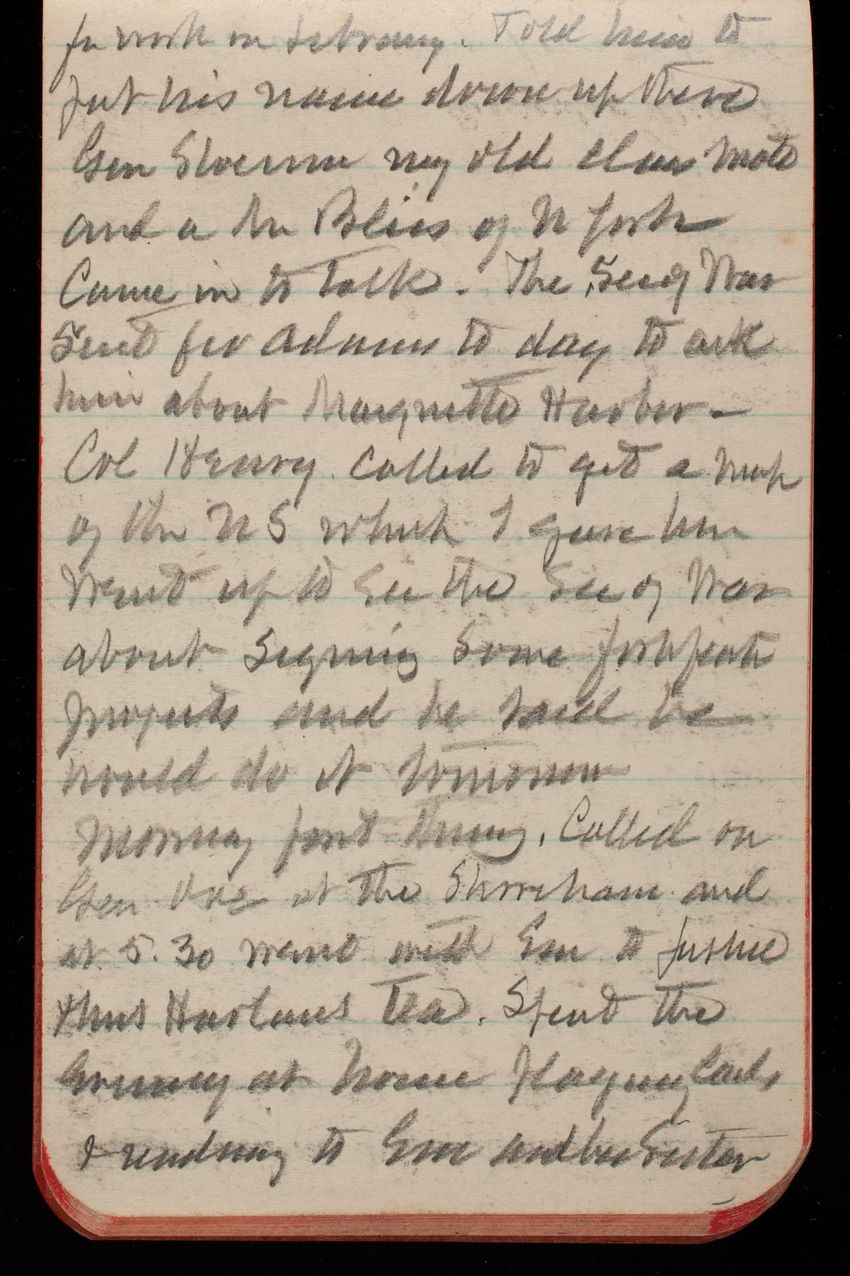 for work on Library. Told him to
put his name down up there
Gen my old class mate
and a Mr Bliss of N York
Came in to talk. The Sec of War
Sent for Adams to day to ask
him about Marquette Harbor -
Col Henry called to get a map
of the US which I gave him
Went up to see the Sec of War
about signing some fortificatn
projects and he said he
would do it tomorrow
Morning first thing. Called on
Gen at the Shoreham and
at 5.30 went with Em to Justice
& Mrs Harlans Tea. Spent the
Evening at home Playing Cards
& reading to Em and her Sister